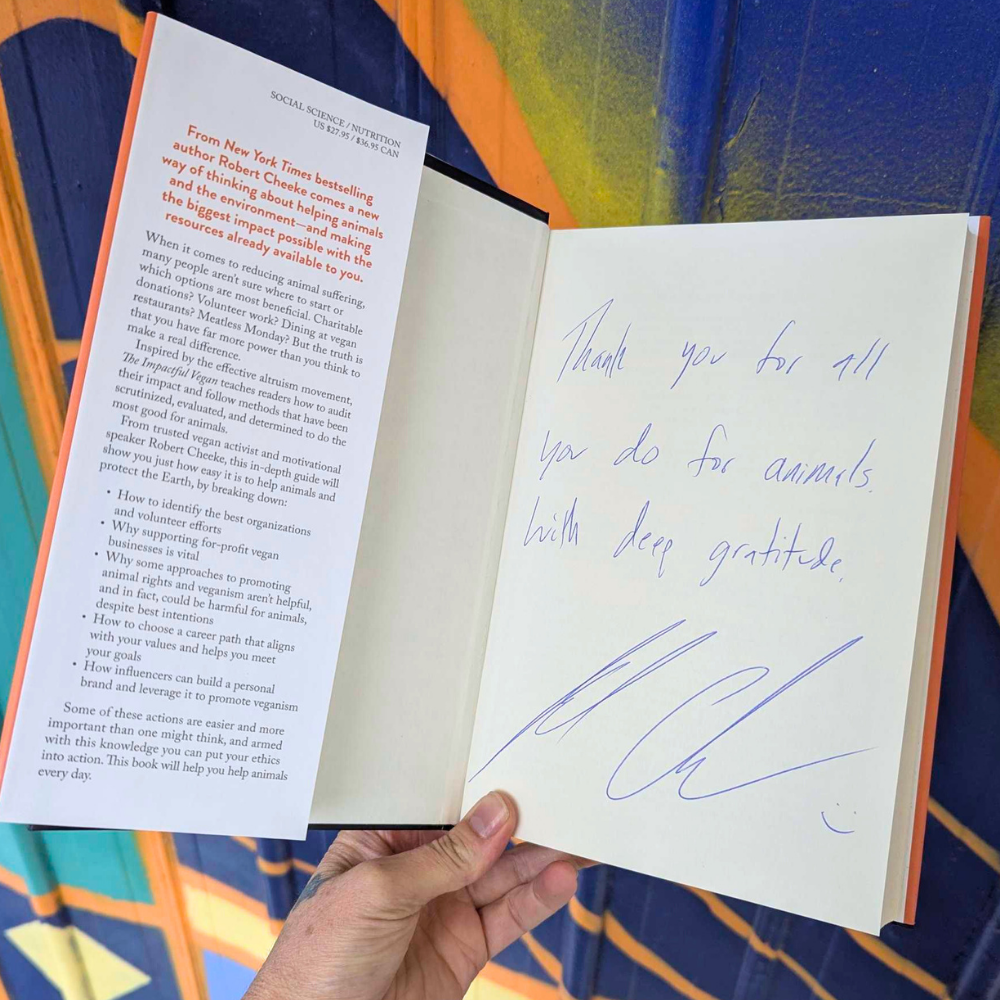 SOCIAL SCIENCE / NUTRITION
US $27.95 / $36.95 CAN
From New York Times bestselling
author Robert Cheeke comes a new
way of thinking about helping animals
and the environment—and making
the biggest impact possible with the
resources already available to you.
When it comes to reducing animal suffering,
many people aren't sure where to start or
which options are most beneficial. Charitable
donations? Volunteer work? Dining at vegan
restaurants? Meatless Monday? But the truth is
that you have far more power than you think to
make a real difference.
Inspired by the effective altruism movement,
The Impactful Vegan teaches readers how to audit
their impact and follow methods that have been
scrutinized, evaluated, and determined to do the
most good for animals.
From trusted vegan activist and motivational
speaker Robert Cheeke, this in-depth guide will
show you just how easy it is to help animals and
protect the Earth, by breaking down:
• How to identify the best organizations
and volunteer efforts
• Why supporting for-profit vegan
businesses is vital
• Why some approaches to promoting
animal rights and veganism aren't helpful,
and in fact, could be harmful for animals,
despite best intentions
• How to choose a career path that aligns
with your values and helps you meet
your goals
• How influencers can build a personal
brand and leverage it to promote veganism
Some of these actions are easier and more
important than one might think, and armed
with this knowledge you can put your ethics
into action. This book will help you help animals
every day.
Thank you for all
you do for animals.
With deep gratitude.